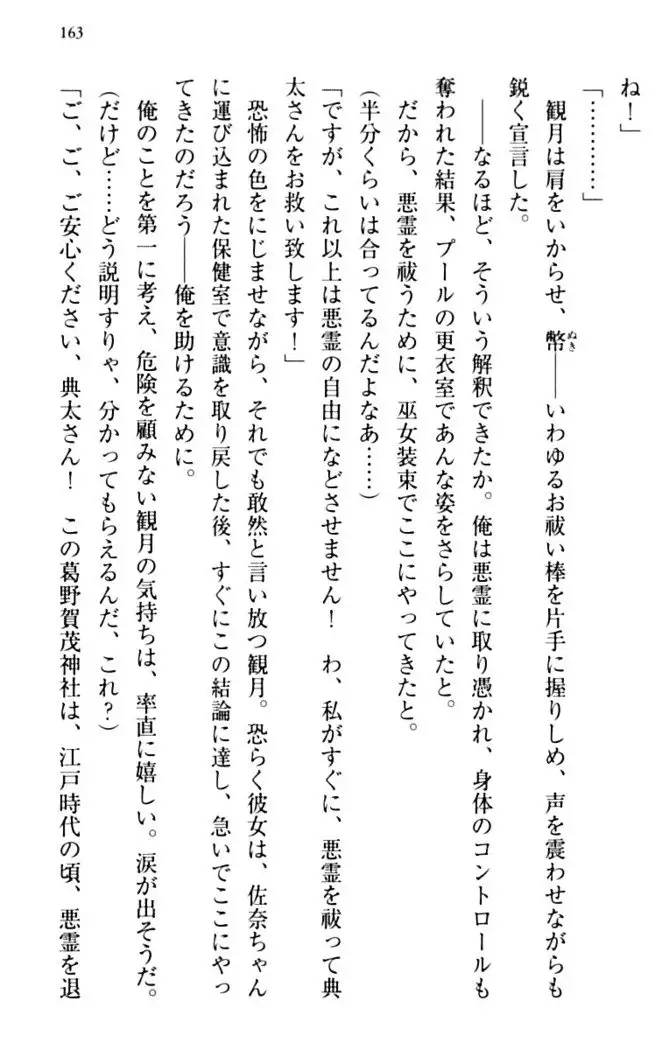 163
ね！」
「…………」
観月は肩をいからせ、幣――いわゆるお祓い棒を片手に握りしめ、声を震わせながらも
ぬき
鋭く宣言した。
――なるほど、そういう解釈できたか。俺は悪霊に取り憑かれ、身体のコントロールも
奪われた結果、プールの更衣室であんな姿をさらしていたと。
だから、悪霊を祓うために、巫女装束でここにやってきたと。
(半分くらいは合ってるんだよなあ……)
「ですが、これ以上は悪霊の自由になどさせません！　わ、私がすぐに、悪霊を祓って典
太さんをお救い致します！」
恐怖の色をにじませながら、それでも敢然と言い放つ観月。恐らく彼女は、佐奈ちゃん
に運び込まれた保健室で意識を取り戻した後、すぐにこの結論に達し、急いでここにやっ
てきたのだろう――俺を助けるために。
俺のことを第一に考え、危険を顧みない観月の気持ちは、率直に嬉しい。涙が出そうだ。
(だけど……どう説明すりゃ、分かってもらえるんだ、これ？)
「ご、ご、ご安心ください、典太さん！　この葛野賀茂神社は、江戸時代の頃、悪霊を退